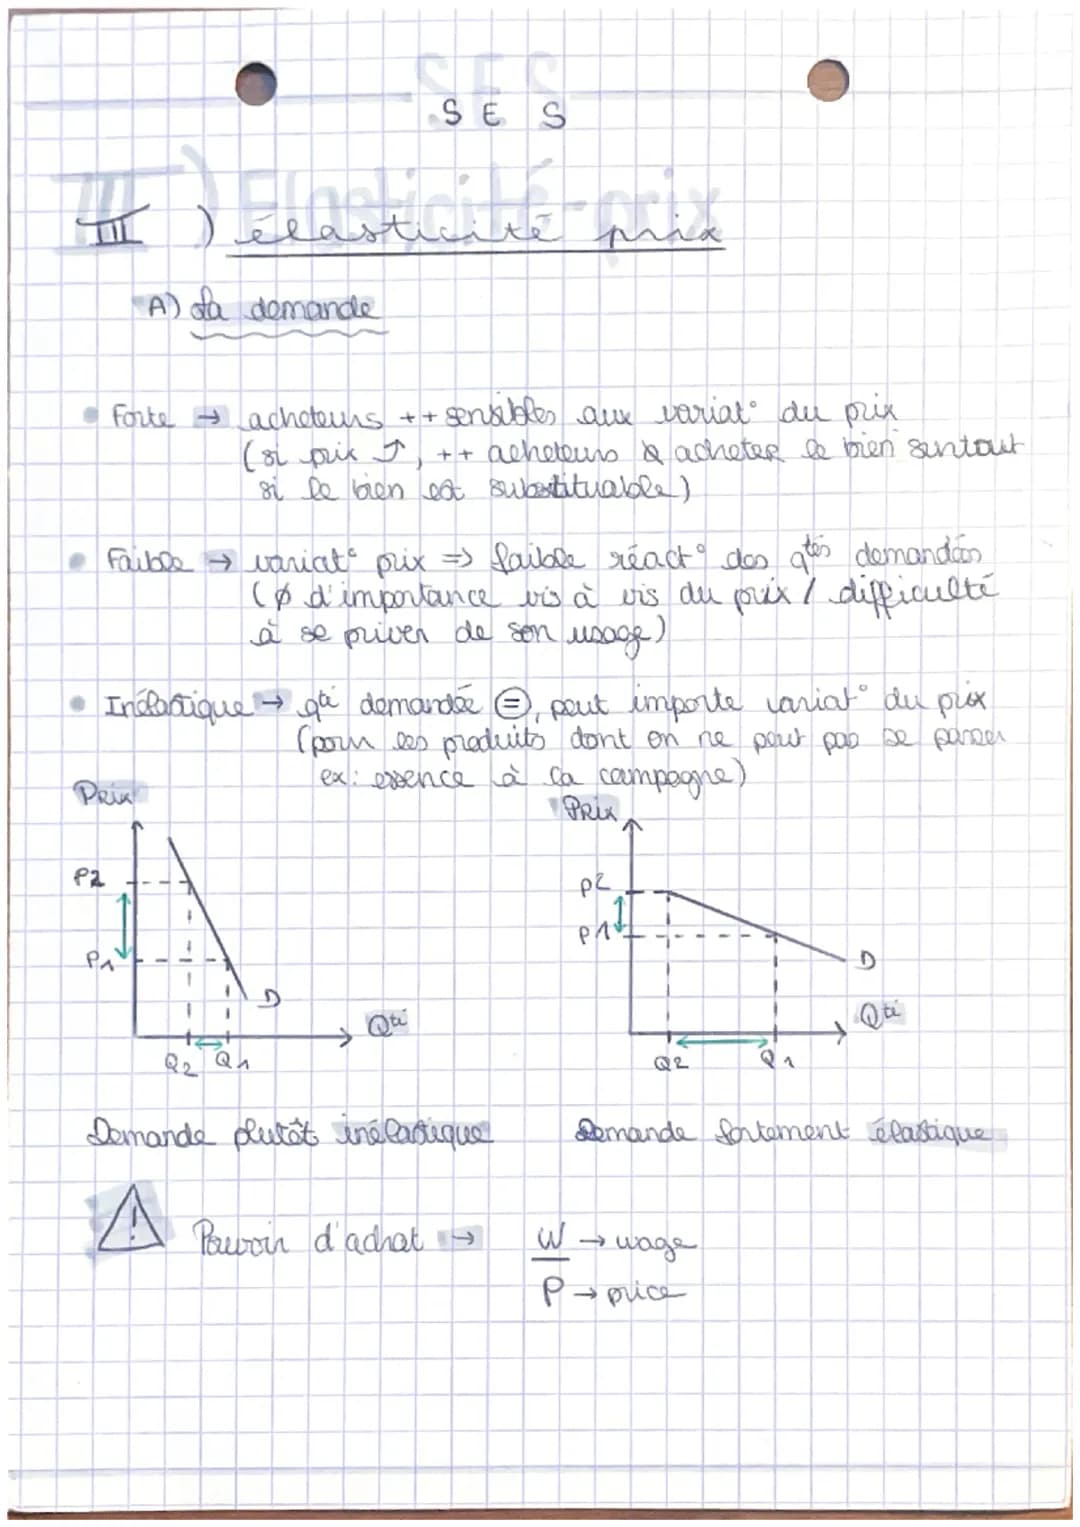 SES
SES
III) Elasticité-prix
III) élasticité prix
A) La demande
• Forte → acheteurs ++ sensibles aux variat° du prix
(si prix ↑, ++ acheteurs acheter le bien surtout
si le bien est substituable)
• Faible → variat° prix => faible réact° des qtés demandées
(ø d'importance vis à vis du prix / difficulté
à se priver de son usage)
• Inélastique → qté demandée =, peut importe variat° du prix
(pour les produits dont on ne peut pas se passer
ex: essence à la campagne)
Prix
P2
P1
D
Qté
Q2 Q1
Prix
P2
P1
D
Qté
Q2 Q1
Demande plutôt inélastique
Demande fortement élastique
! Pouvoir d'achat → W → wage
P → price